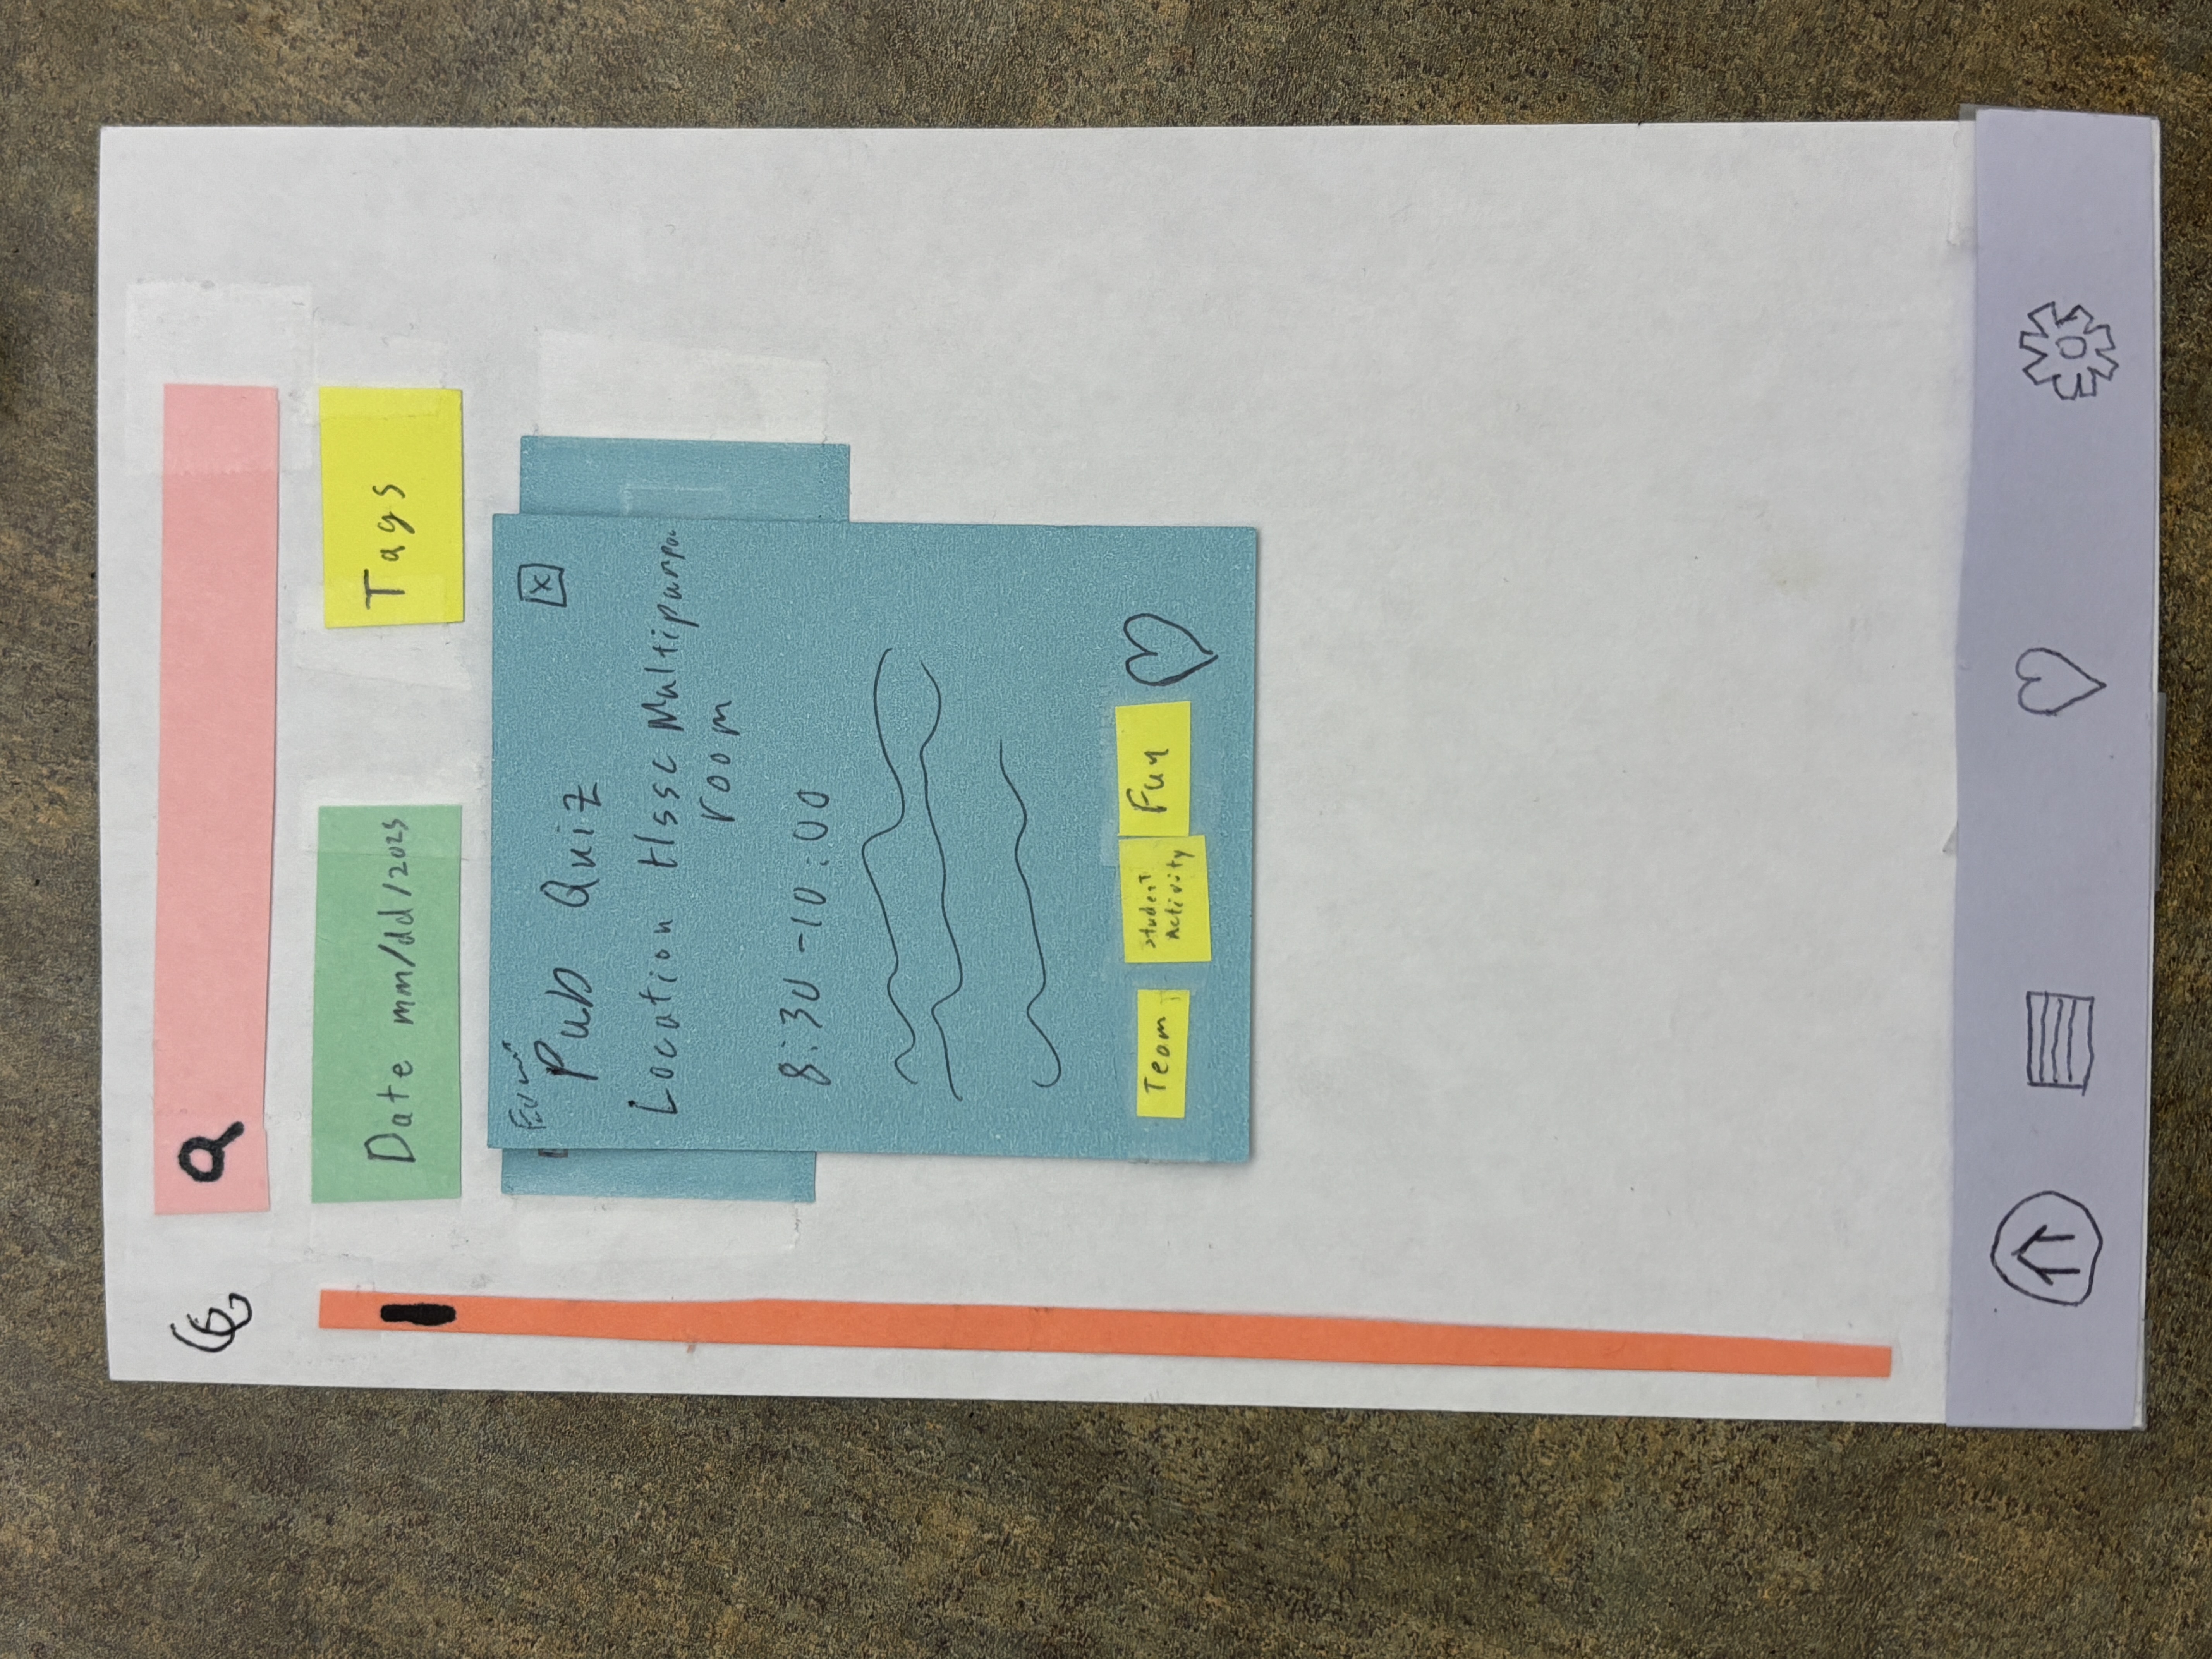 Date mm/dd/2025
Tags
Event
Pub Quiz
X
Location HSSC Multipurpo
room
8:30-10:00
Team
Student
Activity
Fun